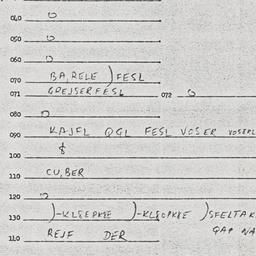 040 O
050 O
060 O
070 BA, RELE ) FESL
071 GREJSERFESL 072 O
080 O
090 KAJFL OGL FESL VOSER VOSERL
100
110 CU, BER
120 O
130 )-KLEEPKVE )-KLEOPKVE ) SFELTAK
110 REJF DER GAP NA